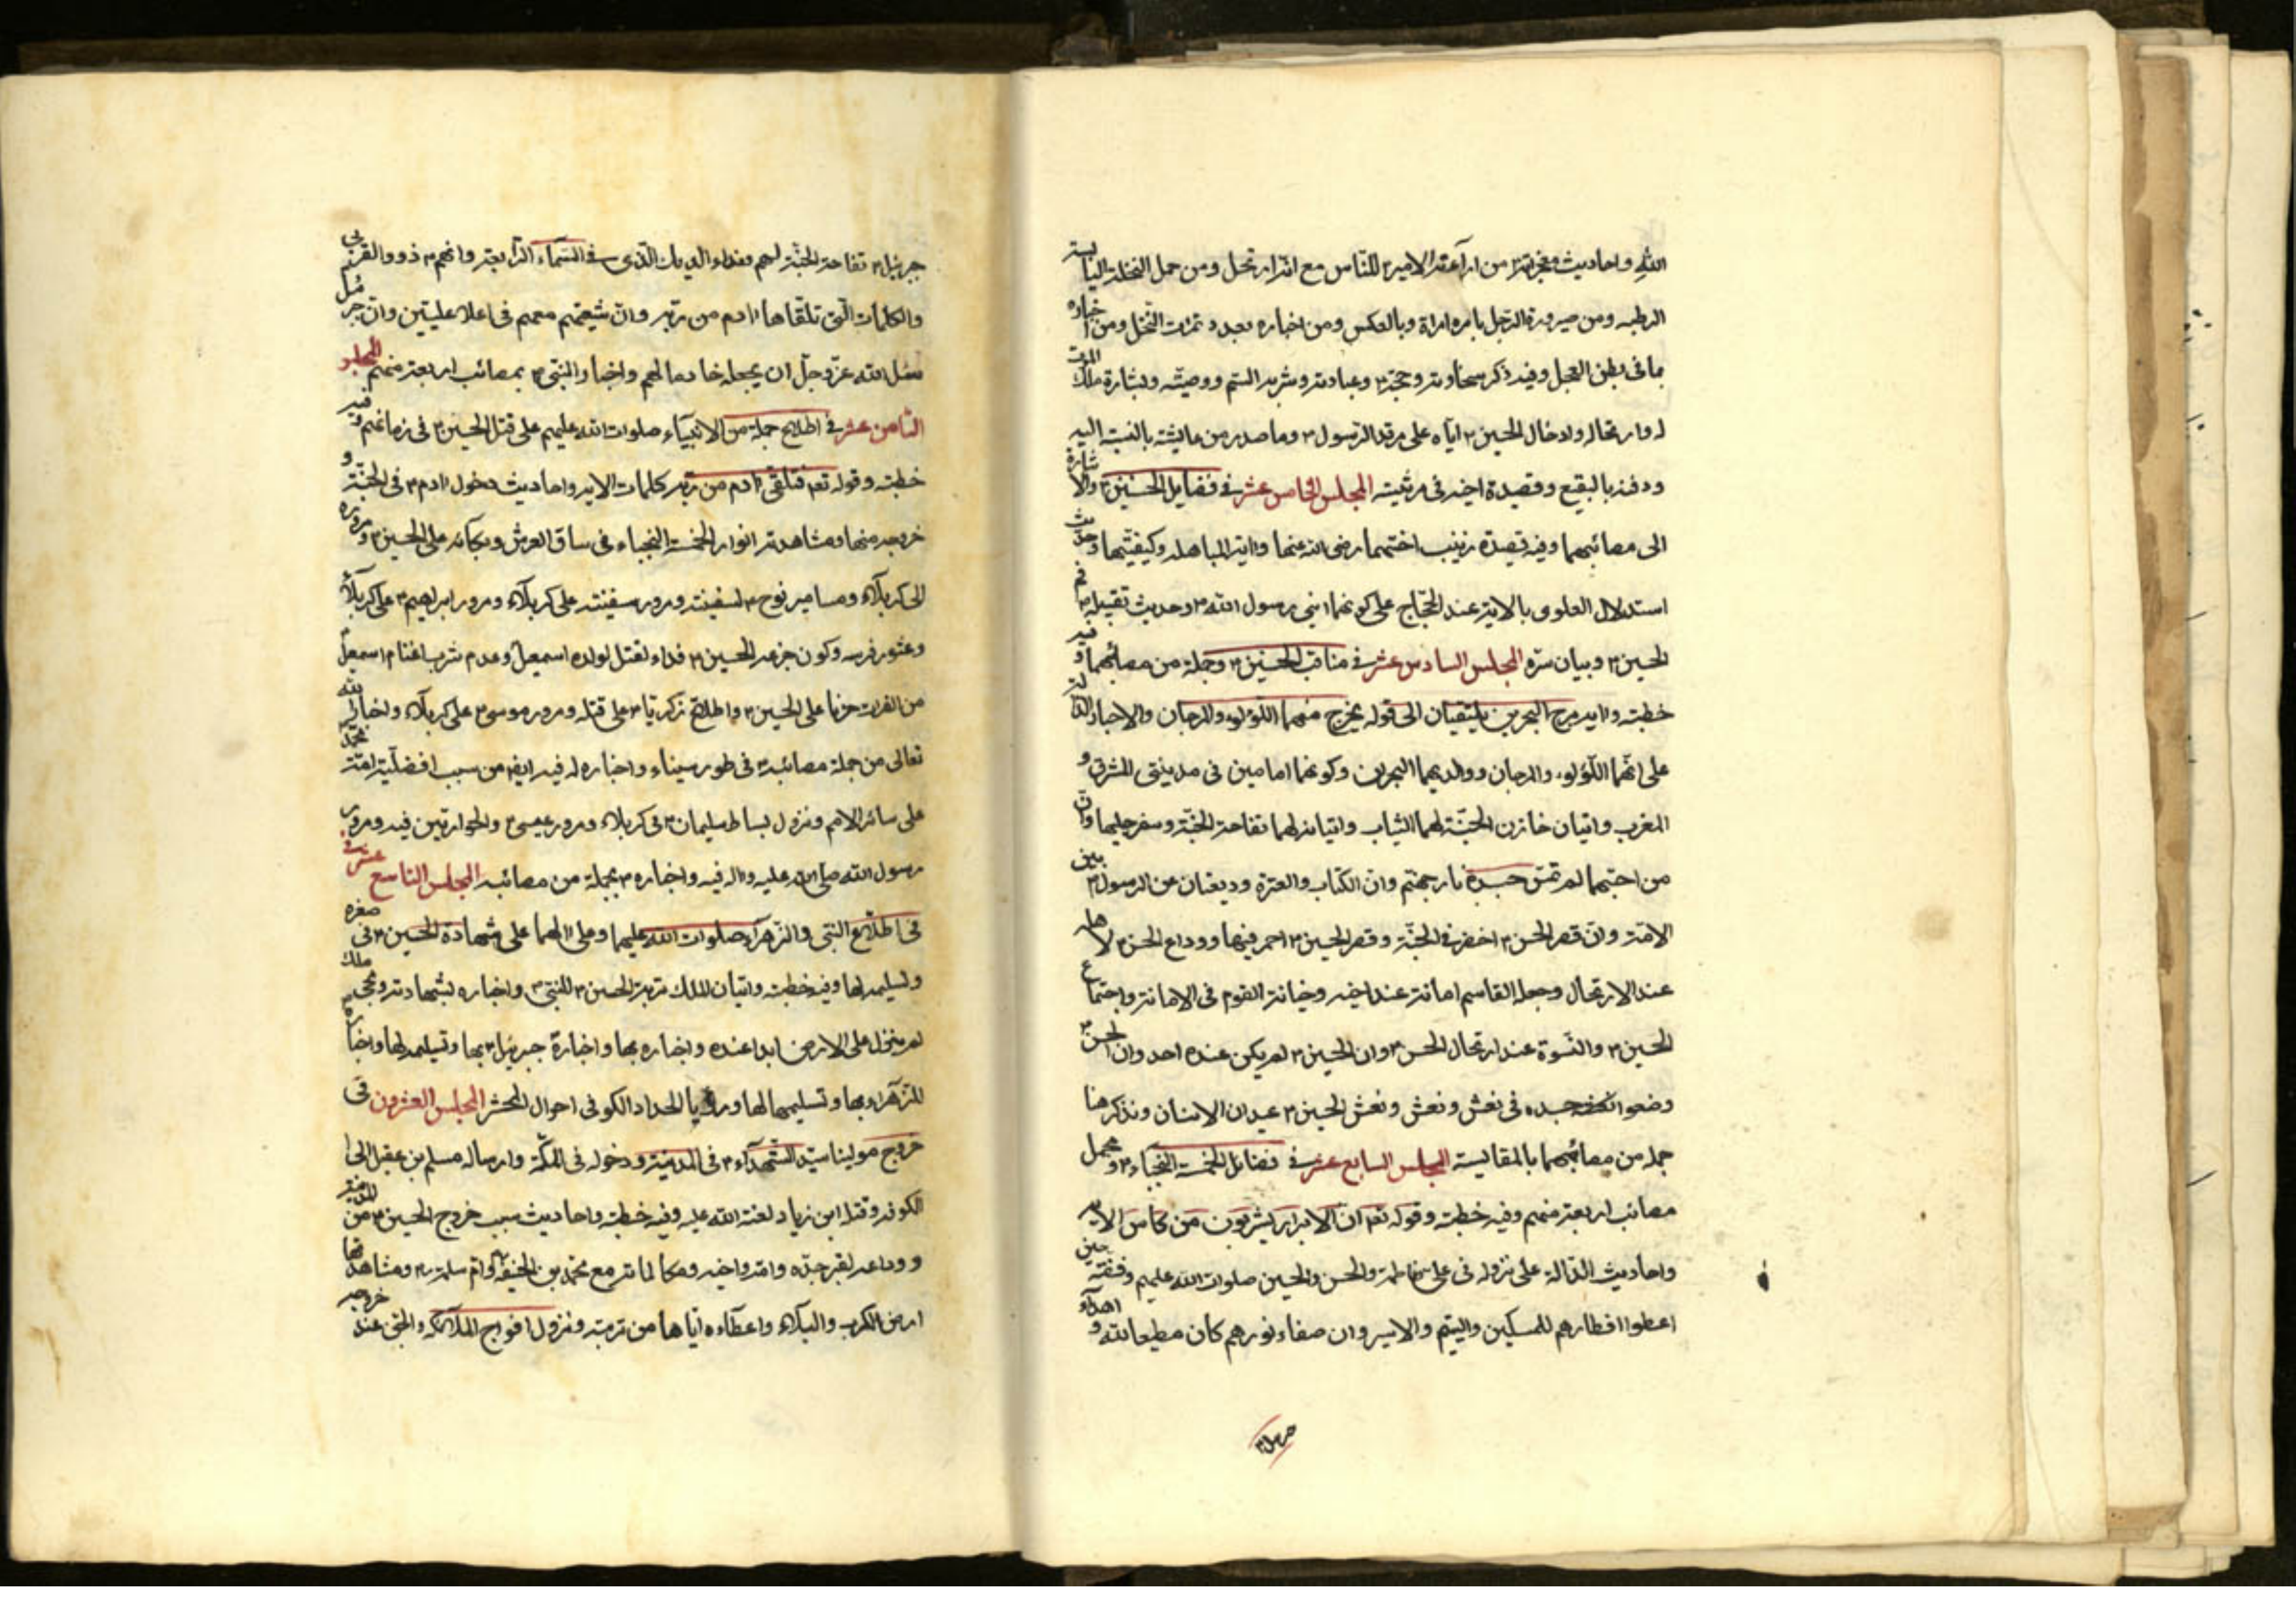 الله واحاديث معجزته من اراءته الامير للناس مع انه ارتحل ومن حمل النخلة اليابسة
الرطب ومن صيرورة الرجل بامره امراة وبالعكس ومن اخباره بعدد تمرات النخل ومن اخباره
بما فى بطن العجل وفيه ذكر سخاوته وحججه وعبادته وشربه السم ووصيته وبشارة ملك الموت
له وارتحاله وادخال الحسين اياه على مرقد الرسول وما صدر من عايشه بالنسبة اليه
ودفنه بالبقيع وقصيدة اخيه فى مرثيته المجلس الخامس عشر فى فضايل الحسنين والاشارة
الى مصائبهما وفيه قصة زينب اختهما رضى الله عنها واية المباهله وكيفيتها وحديث
استدلال العلوى بالاية عند الحجاج على كونهما ابنى رسول الله وحديث تقبيله فم
الحسين وبيان سره المجلس السادس عشر فى مناقب الحسنين وجملة من مصائبهما وفيه
خطبة واية مرج البحرين يلتقيان الى قوله يخرج منهما اللؤلؤ والمرجان والاخبار الدالة
على انهما اللؤلؤ والمرجان ووالديهما البحرين وكونهما امامين فى مدينتى المشرق و
المغرب واتيان خازن الجنة لهما الثياب واتيانه لهما تفاحة الجنة وسفرجليها وان
من احبهما لم تمس جسده نار جهنم وان الكتاب والعترة وديعتان عن الرسول بين
الامة وان قصر الحسن اخضر فى الجنة وقصر الحسين احمر فيها ووداع الحسن لاهله
عند الارتحال وجعله القاسم امانة عند اخيه وخيانة القوم فى الامانة واجتماع
الحسين والنسوة عند ارتحال الحسن وان الحسين لم يكن عنده احد وان الحسن
وضعوا جسده فى نعش ونعش الحسين عيدان الاسنان ونذكر هنا
جملة من مصائبهما بالمقايسة المجلس السابع عشر فى فضايل الخمسة النجباء ومجمل
مصائب اربعة منهم وفيه خطبة وقوله تعه ان الابرار يشربون من كاس الاية
واحاديث الدالة على نزوله فى على وفاطمة والحسن والحسين صلوات الله عليهم وفضة حين
اعطوا افطارهم للمسكين واليتيم والاسير وان صفاء نورهم كان مطيعا لله و اهداء
جبرئيل
جبرئيل تفاحة الجنة لهم ونداء الديك الذى فى السماء الرابعة وانهم ذوو القربى
والكلمات التى تلقاها ادم من ربه وان شيعتهم معهم فى اعلا عليين وان جبرئيل
سئل الله عز وجل ان يجعله خادما لهم واخبار النبى بمصائب اربعة منهم المجلس
الثامن عشر فى اطلاع جملة من الانبياء صلوات الله عليهم على قتل الحسين فى زمانهم وفيه
خطبة وقوله تعه فتلقى ادم من ربه كلمات الاية واحاديث دخول ادم فى الجنة و
خروجه منها ومشاهدته انوار الخمسة النجباء فى ساق العرش وبكائه على الحسين ومروره
الى كربلاء ومسامير نوح لسفينته ومرور سفينته على كربلاء ومرور ابراهيم على كربلاء
وعثور فرسه وكون جزعه للحسين فداء لقتل لولده اسمعيل وعدم شرب اغنام اسمعيل
من الفرات حزنا على الحسين واطلاع زكريا على قتله ومرور موسى على كربلاء واخبار الله
تعالى من جملة مصائبه فى طور سيناء واخباره له فيه ايضا من سبب افضلية امة محمد
على سائر الامم ونزول بساط سليمان فى كربلاء ومرور عيسى والحواريين فيه ومرور
رسول الله صلى الله عليه واله فيه واخباره بجملة من مصائبه المجلس التاسع عشر
فى اطلاع النبى والزهراء صلوات الله عليهما وعلى الهما على شهادة الحسين فى صغره
وتسليمه لها وفيه خطبة واتيان الملك تربة الحسين للنبى واخباره بشهادته ومجى ملك
لم ينزل على الارض ابدا عنده واخباره بها واخبارة جبرئيل بها وتسليمه لها واخباره
للزهراء بها وتسليمها لها ورؤيا الحداد الكوفى احوال المحشر المجلس العشرون فى
خروج مولينا سيد الشهداء فى المدينة ودخوله فى المكة وارساله مسلم بن عقيل الى
الكوفه وقتله ابن زياد لعنة الله عليه وفيه خطبة واحاديث سبب خروج الحسين من المدينة
ووداعه لقبر جده وامه واخيه ومكالماته مع محمد بن الحنفية وام سلمة ومشاهدتها
ارض الكرب والبلاء واعطاءه اياها من تربته ونزول افواج الملائكه والجن عند خروجه